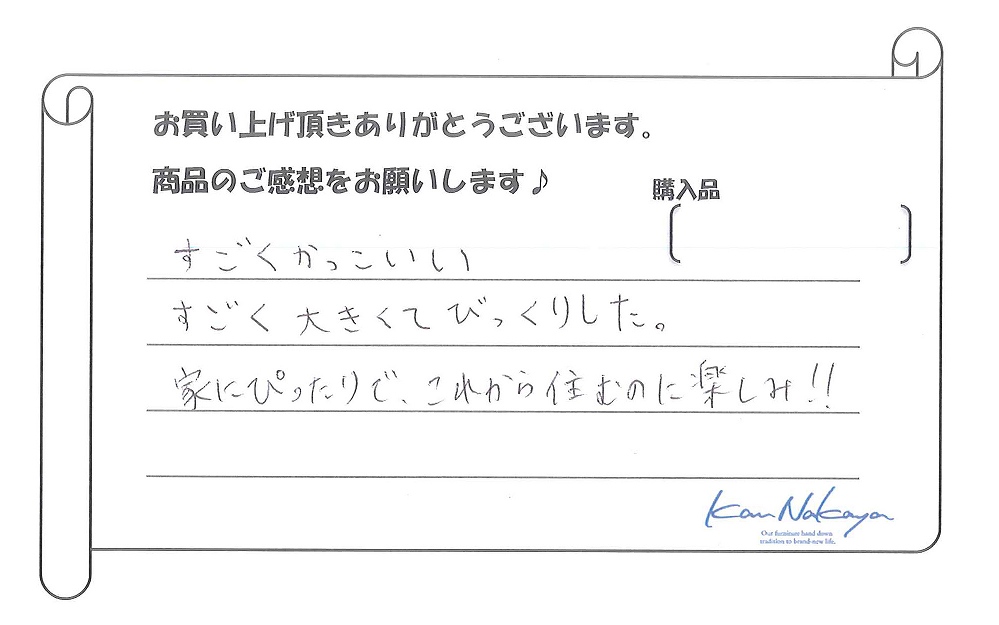 お買い上げ頂きありがとうございます。
商品のご感想をお願いします♪
購入品
すごくかっこいい
すごく大きくてびっくりした。
家にぴったりで、これから住むのに楽しみ!!
Kan Nakaya
Our furniture hand down
tradition to brand-new life.